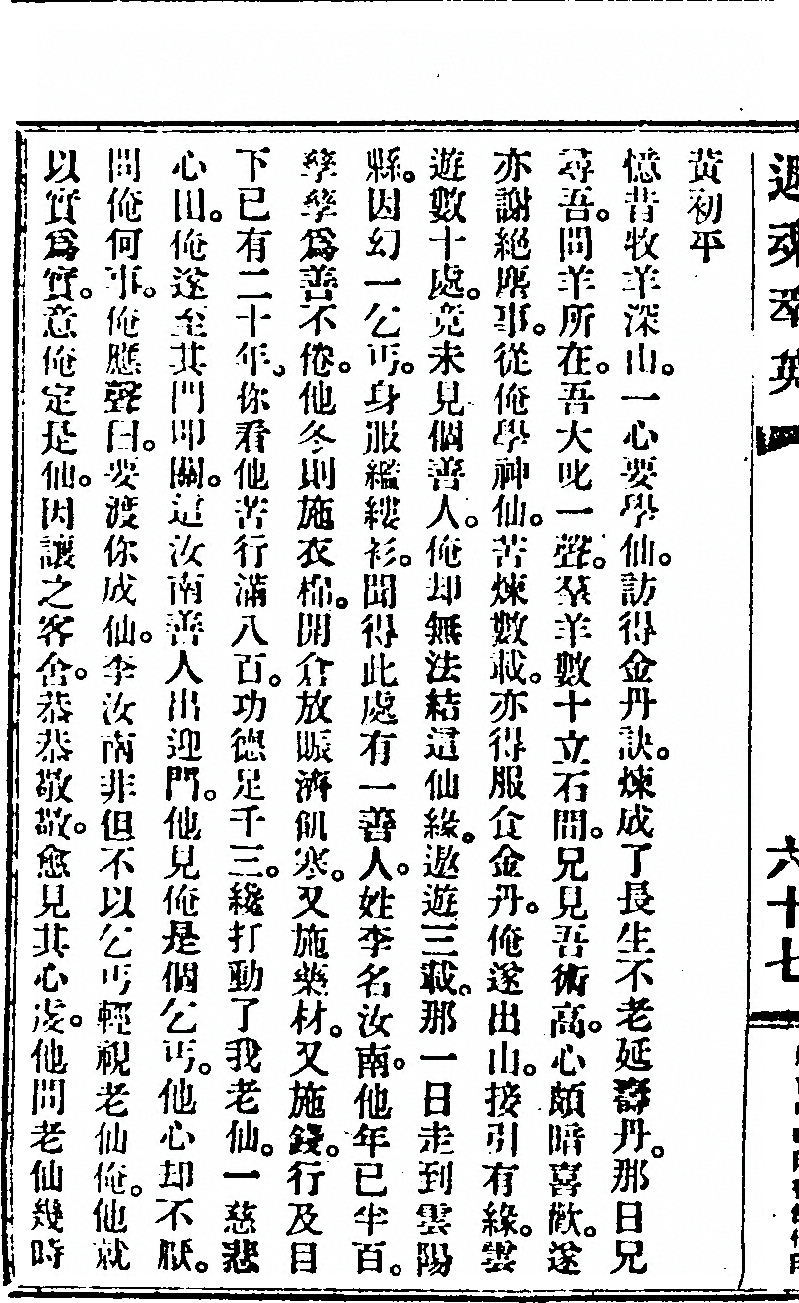 六十七
黃初平
憶昔牧羊深山。一心要學仙。訪得金丹訣。煉成了長生不老延壽丹。那日兄
尋吾。問羊所在。吾大叱一聲。羣羊數十立石間。兄見吾術高。心頗暗喜歡。遂
亦謝絕塵事。從俺學神仙。苦煉數載。亦得服食金丹。俺遂出山。接引有緣。雲
遊數十處。竟未見個善人。俺却無法結這仙緣。遨遊三載。那一日走到雲陽
縣。因幻一乞丐。身服繿縷衫。聞得此處有一善人。姓李名汝南。他年已半百。
孳孳爲善不倦。他冬則施衣棉。開倉放賑濟飢寒。又施藥材。又施錢。行及目
下已有二十年、你看他苦行滿八百。功德足千三。纔打動了我老仙。一慈悲
心田。俺遂至其門叩關。這汝南善人出迎門。他見俺是個乞丐。他心却不厭。
問俺何事。俺應聲曰。要渡你成仙。李汝南非但不以乞丐輕視老仙俺。他就
以實爲實。意俺定是仙。因讓之客舍。恭恭敬敬。愈見其心虔。他問老仙幾時